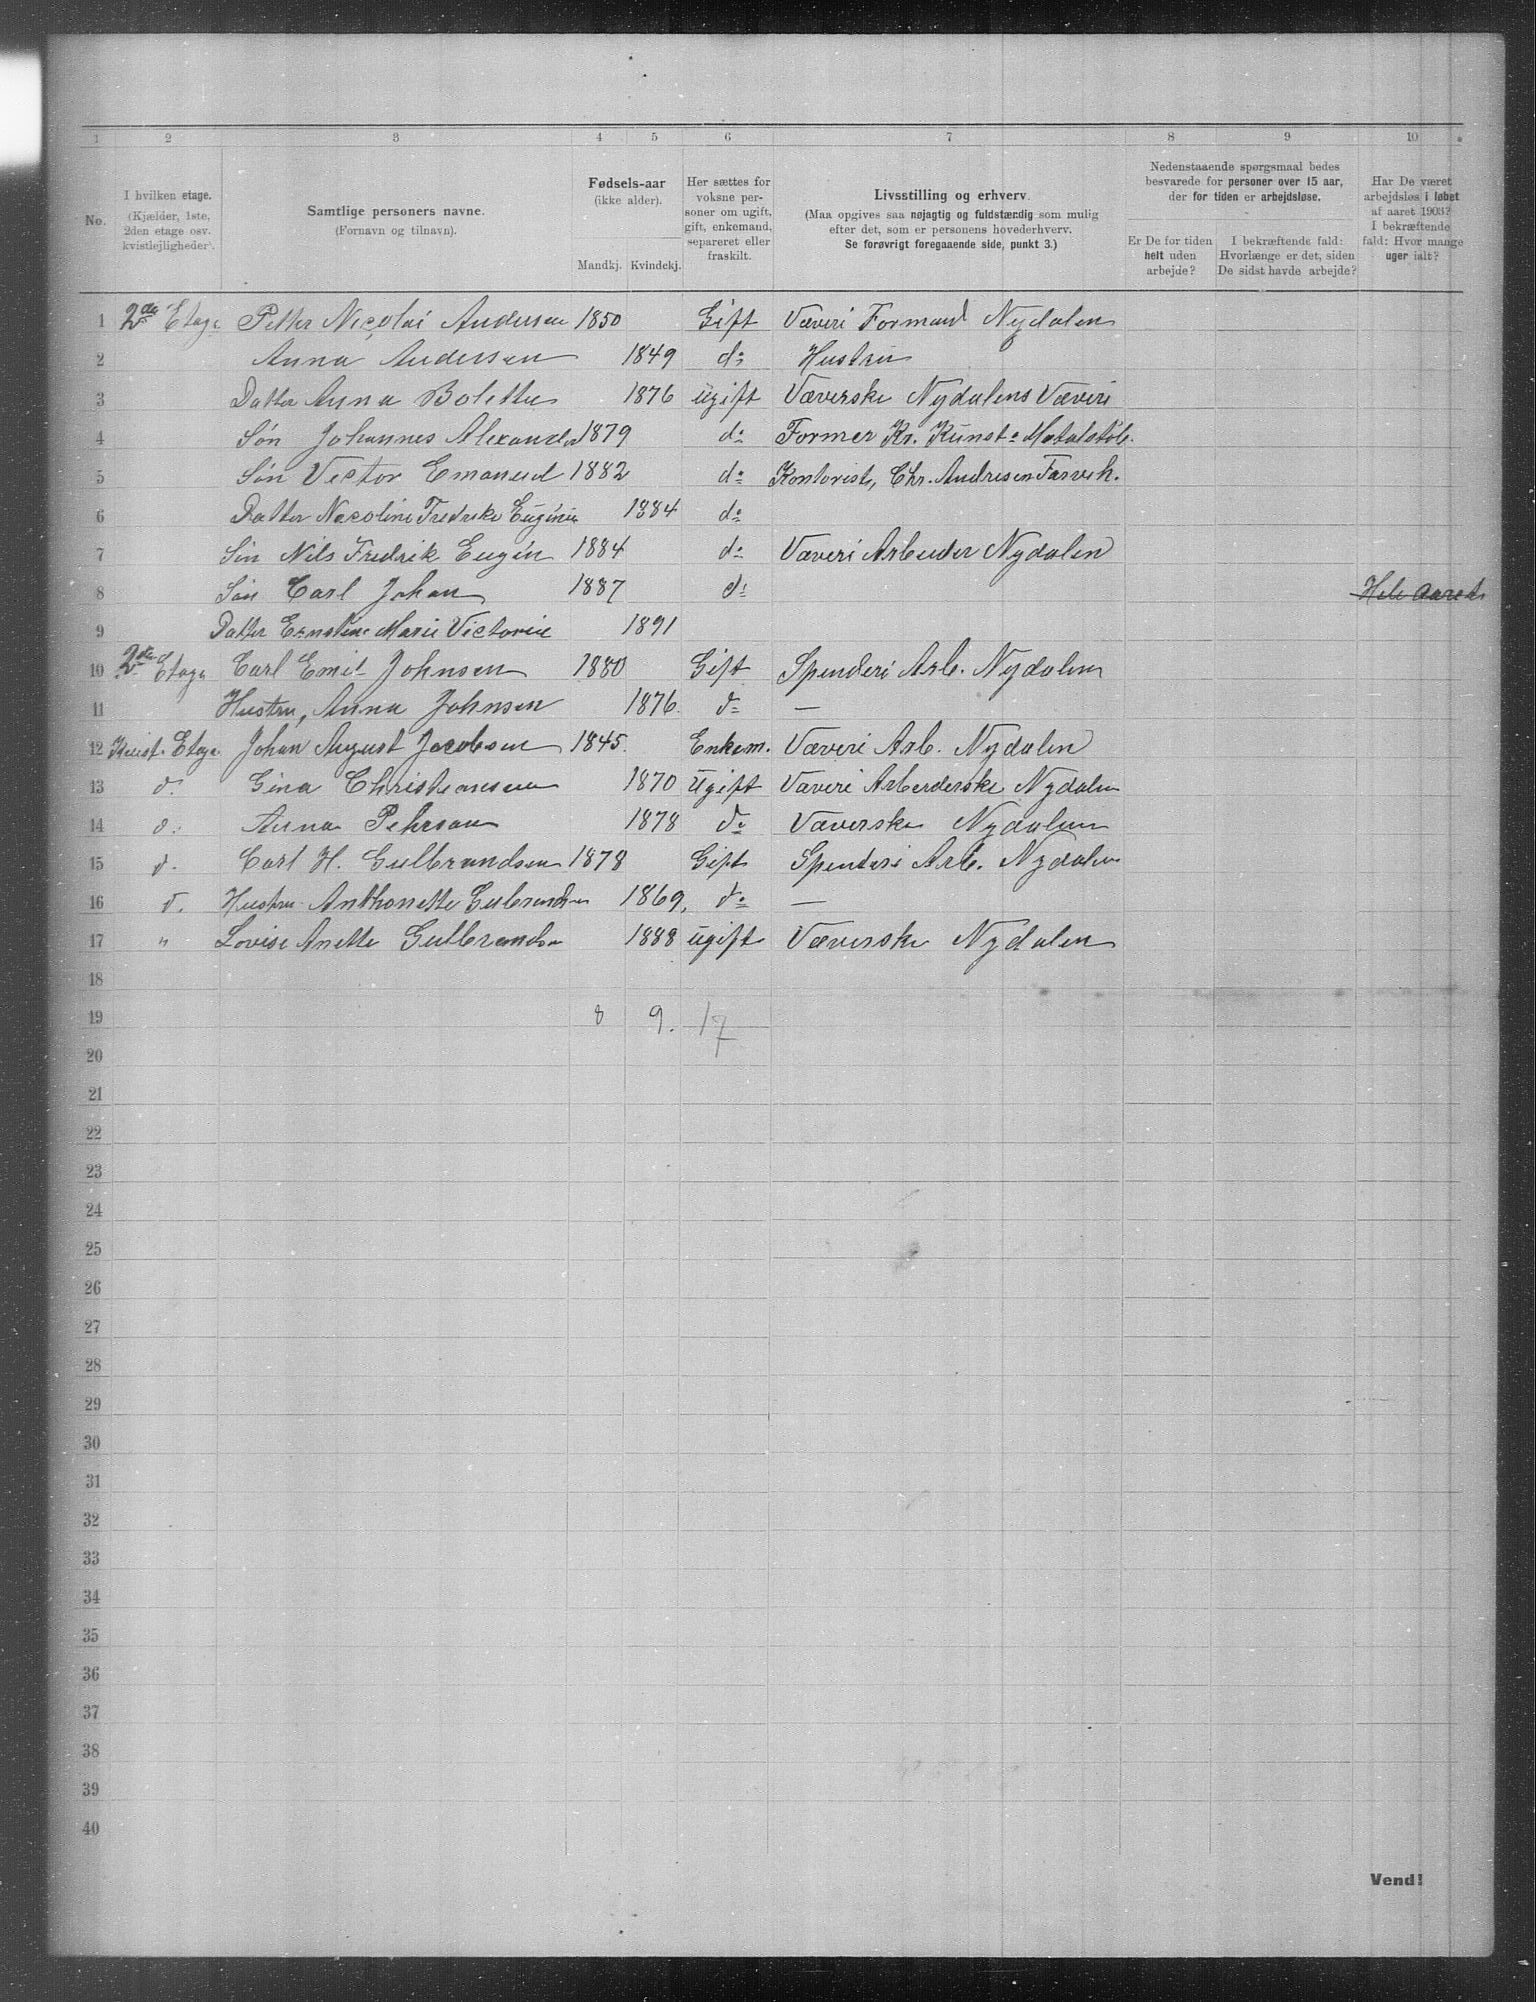 1 2 3 4 5 6 7 8 9 10
No.
I hvilken etage.
(Kjælder, 1ste,
2den etage osv.
kvistlejligheder).
Samtlige personers navne.
(Fornavn og tilnavn).
Fødsels-aar
(ikke alder).
Mandkj. Kvindekj.
Her sættes for
voksne per-
soner om ugift,
gift, enkemand,
separeret eller
fraskilt.
Livsstilling og erhverv.
(Maa opgives saa nøjagtig og fuldstændig som mulig
efter det, som er personens hovederhverv.
Se forøvrigt foregaaende side, punkt 3.)
Nedenstaaende spørgsmaal bedes
besvarede for personer over 15 aar,
der for tiden er arbejdsløse.
Er De for tiden
helt uden
arbejde?
I bekræftende fald:
Hvorlænge er det, siden
De sidst havde arbejde?
Har De været
arbejdsløs i løbet
af aaret 1903?
I bekræftende
fald: Hvor mange
uger ialt?
1 2de Etage Petter Nicolai Andersen 1850 Gift Væveri Formand Nydalen
2 Anna Andersen 1849 do Hustru
3 Datter Anna Bolette 1876 ugift Væverske Nydalens Væveri
4 Søn Johannes Alexander 1879 do Former Kr. Kunst- Metalstøb.
5 Søn Victor Emanuel 1882 do Kontorist, Chr. Andresen Farveh.
6 Datter Nicoline Fredrike Eugenie 1884 do
7 Søn Nils Fredrik Eugén 1884 do Væveri Arbeider Nydalen
8 Søn Carl Johan 1887 do Hele aaret
9 Datter Ernstine Marie Victorie 1891
10 2de Etage Carl Emil Johnsen 1880 Gift Spenderi Arb. Nydalen
11 Hustru, Anna Johnsen 1876. do —
12 Kvist. Etage Johan August Jacobsen 1845. Enkem. Væveri Arb. Nydalen
13 d. Gina Christiansen 1870 ugift Væveri Arbeiderske Nydalen
14 d. Anna Pehrson 1878 do Væverske Nydalen
15 d. Carl H. Gulbrandsen 1878 Gift Spenderi Arb. Nydalen
16 d. Hustru Anthonette Gulbrandsen 1869, do —
17 " Lovise Anette Gulbrandsen 1888 ugift Væverske Nydalen
18
19 8 9. 17
20
21
22
23
24
25
26
27
28
29
30
31
32
33
34
35
36
37
38
39
40
Vend!